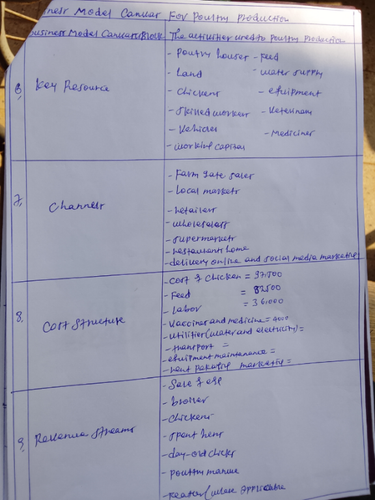 ness Model Canvas For Poultry Production
Business Model Canvas Block The activities used to Poultry Production
6, Key Resource
- Poultry houses - Feed
- Land - water supply
- Chickens - equipment
- Skilled workers - Veterinary
- Vehicles - Medicines
- working capital
7, Channels
- Farm gate sales
- Local markets
- retailers
- wholesalers
- supermarkets
- restaurants home
- delivery online and social media marketing
8. Cost Structure
- Cost of Chicken = 37,500
- Feed = 82500
- Labor = 36000
- Vaccines and medicine = 4000
- utilities (water and electricity) =
- transport =
- equipment maintenance =
- marketing =
9, Revenue Streams
- Sale of egg
- broiler
- chickens
- spent hens
- day-old chicks
- poultry manure
- where applicable